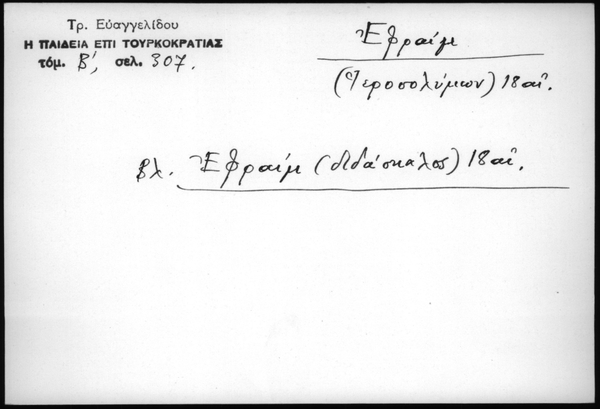 Τρ. Εὐαγγελίδου
Η ΠΑΙΔΕΙΑ ΕΠΙ ΤΟΥΡΚΟΚΡΑΤΙΑΣ
τόμ. Β', σελ. 307.
Ἐφραίμ
(Ἱεροσολύμων) 18 αἰ.
βλ. Ἐφραίμ (διδάσκαλος) 18 αἰ.